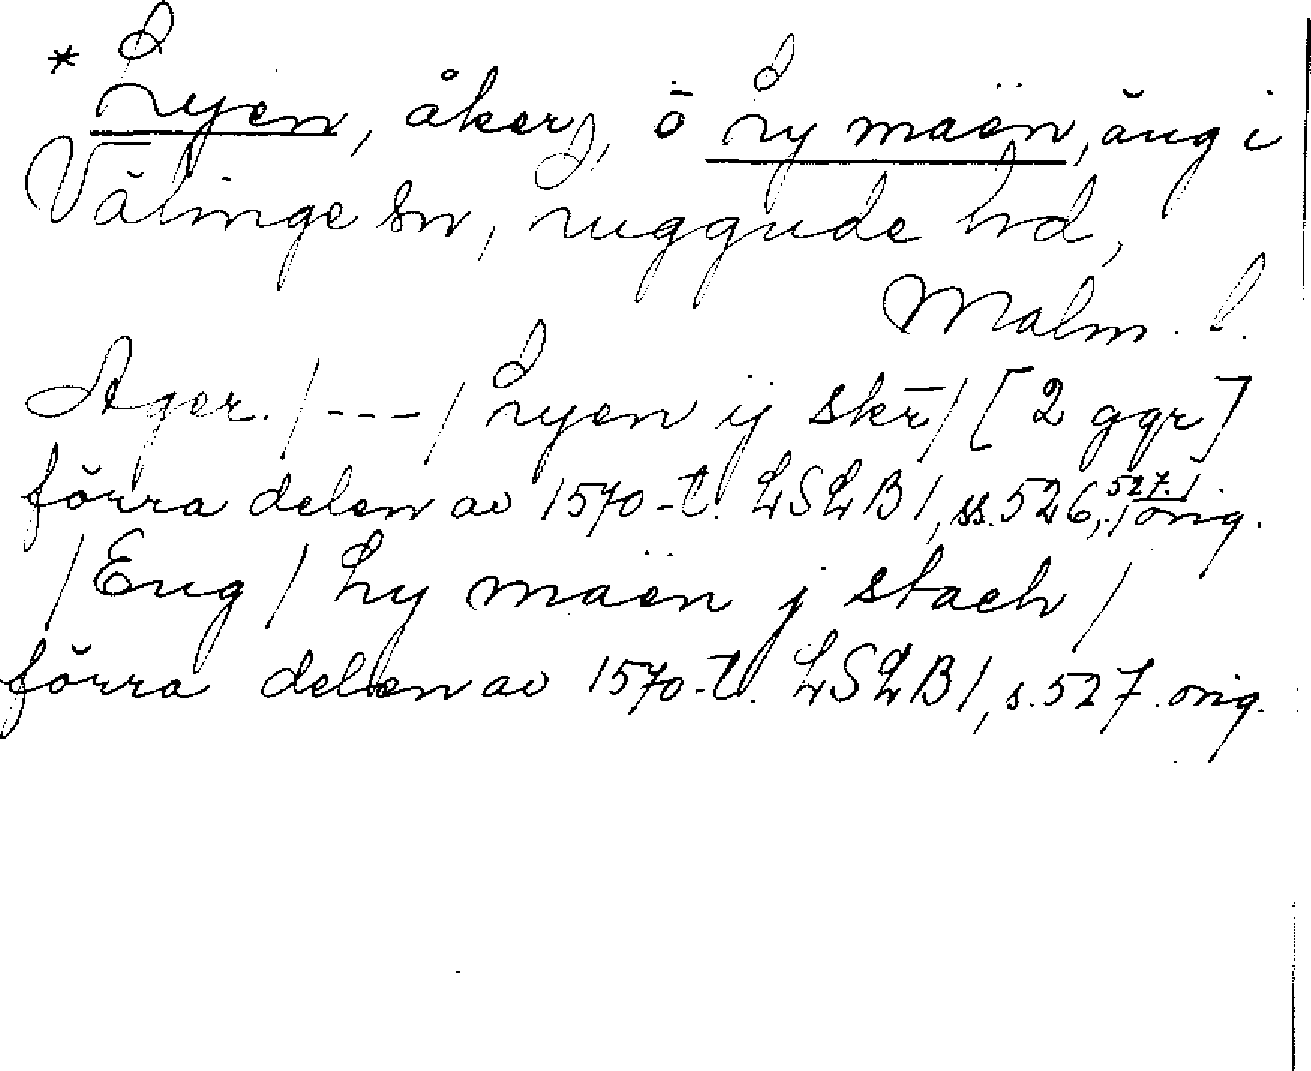 * Lyen, åker, o Ly maën, äng i
Välinge sn, Luggude hd,
Malm. l.
Ager. / --- / Lyen ij skr̄ / [2 ggr]
förra delen av 1570-t. LSLB 1, ss. 526, 527. orig.
/ Eng / Ly maën j stach /
förra delen av 1570-t. LSLB 1, s. 527. orig.